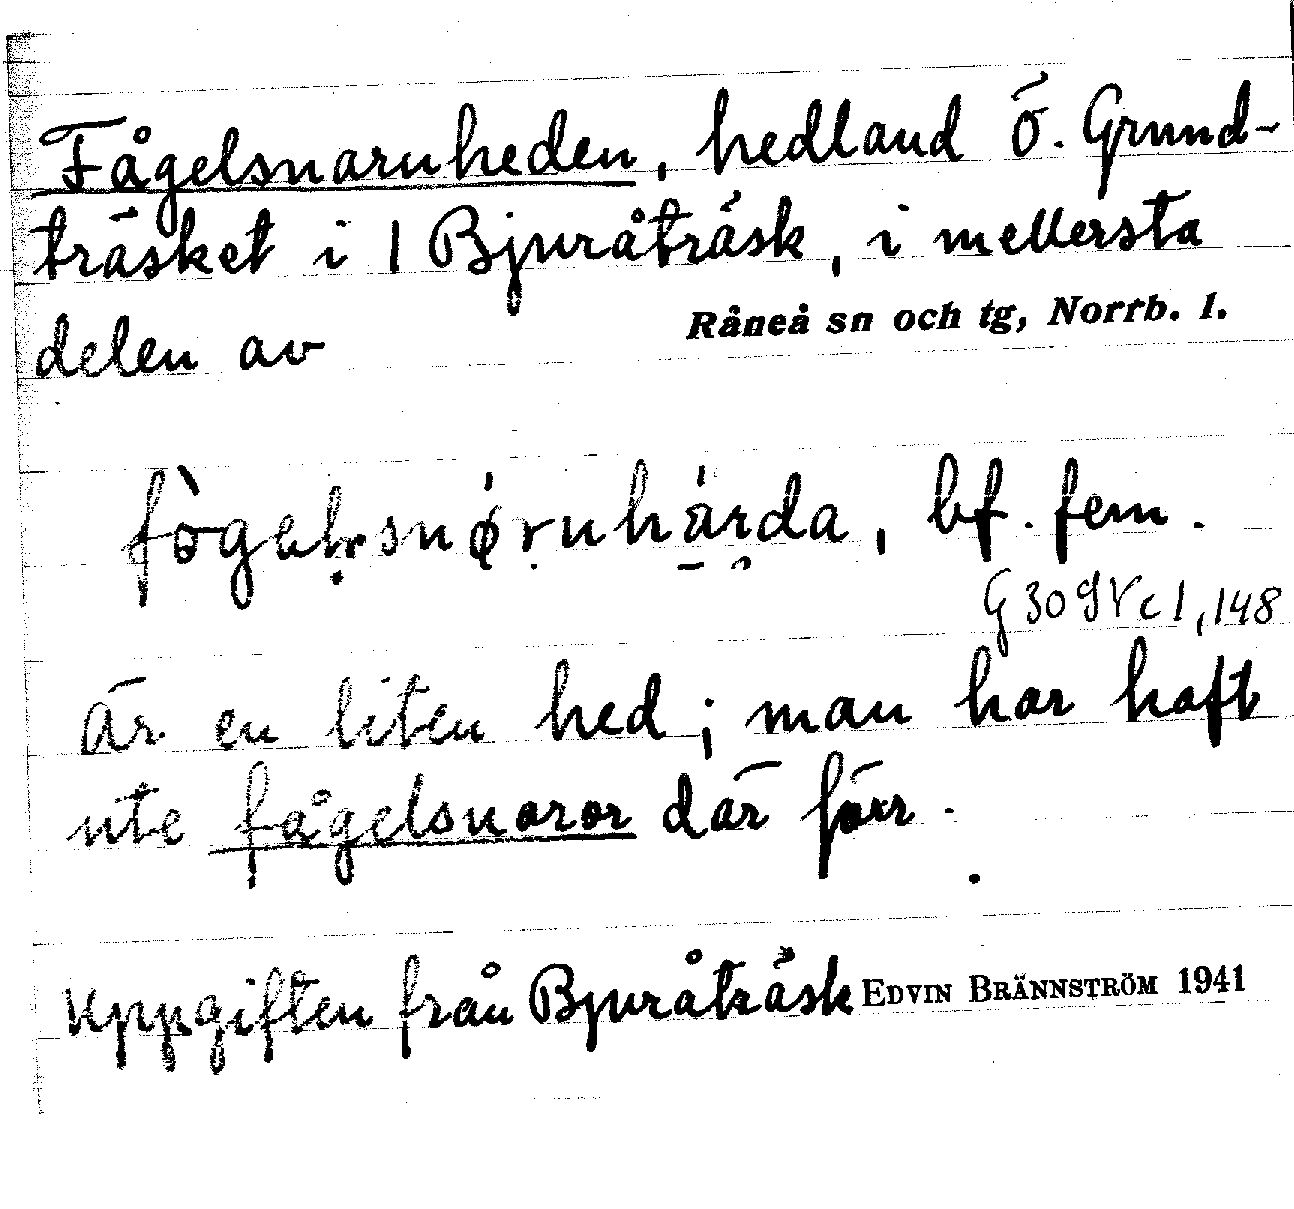 Fågelsnaruheden, hedland ö. Grund-
träsket i 1 Bjuråträsk, i mellersta
delen av Råneå sn och tg, Norrb. l.
bf. fem.
Är en liten hed; man har haft
ute fågelsnaror där förr.
Uppgiften från Bjuråträsk EDVIN BRÄNNSTRÖM 1941